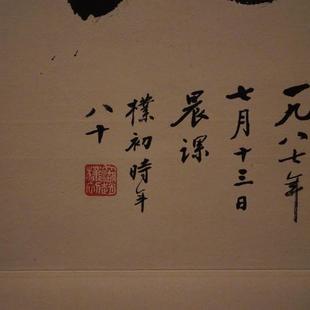 一九八七年
七月十三日
晨课
樸初時年
八十